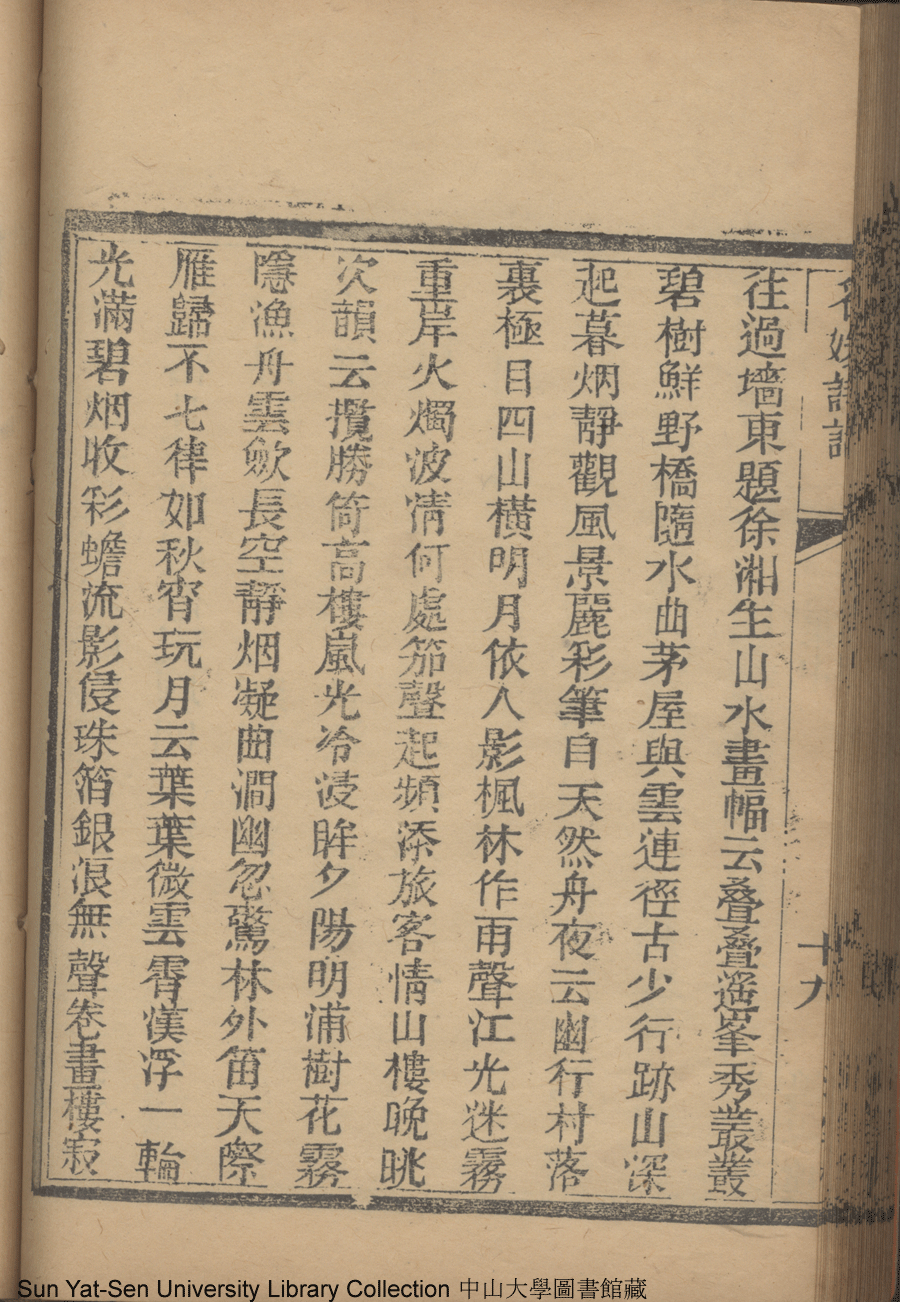 名媛詩話
十九
往過墻東題徐湘生山水畫幅云叠叠遥峯秀叢叢
碧樹鮮野橋隨水曲茅屋與雲連徑古少行跡山深
起暮烟靜觀風景麗彩筆自天然舟夜云幽行村落
裏極目四山橫明月依人影楓林作雨聲江光迷霧
重岸火燭波清何處笳聲起頻添旅客情山樓晚眺
次韻云攬勝倚高樓嵐光冷浸眸夕陽明浦樹花霧
隱漁舟雲歛長空靜烟凝曲澗幽忽驚林外笛天際
雁歸不七律如秋宵玩月云葉葉微雲霄漢浮一輪
光滿碧烟收彩蟾流影侵珠箔銀浪無聲卷畫樓寂
Sun Yat-Sen University Library Collection 中山大學圖書館藏